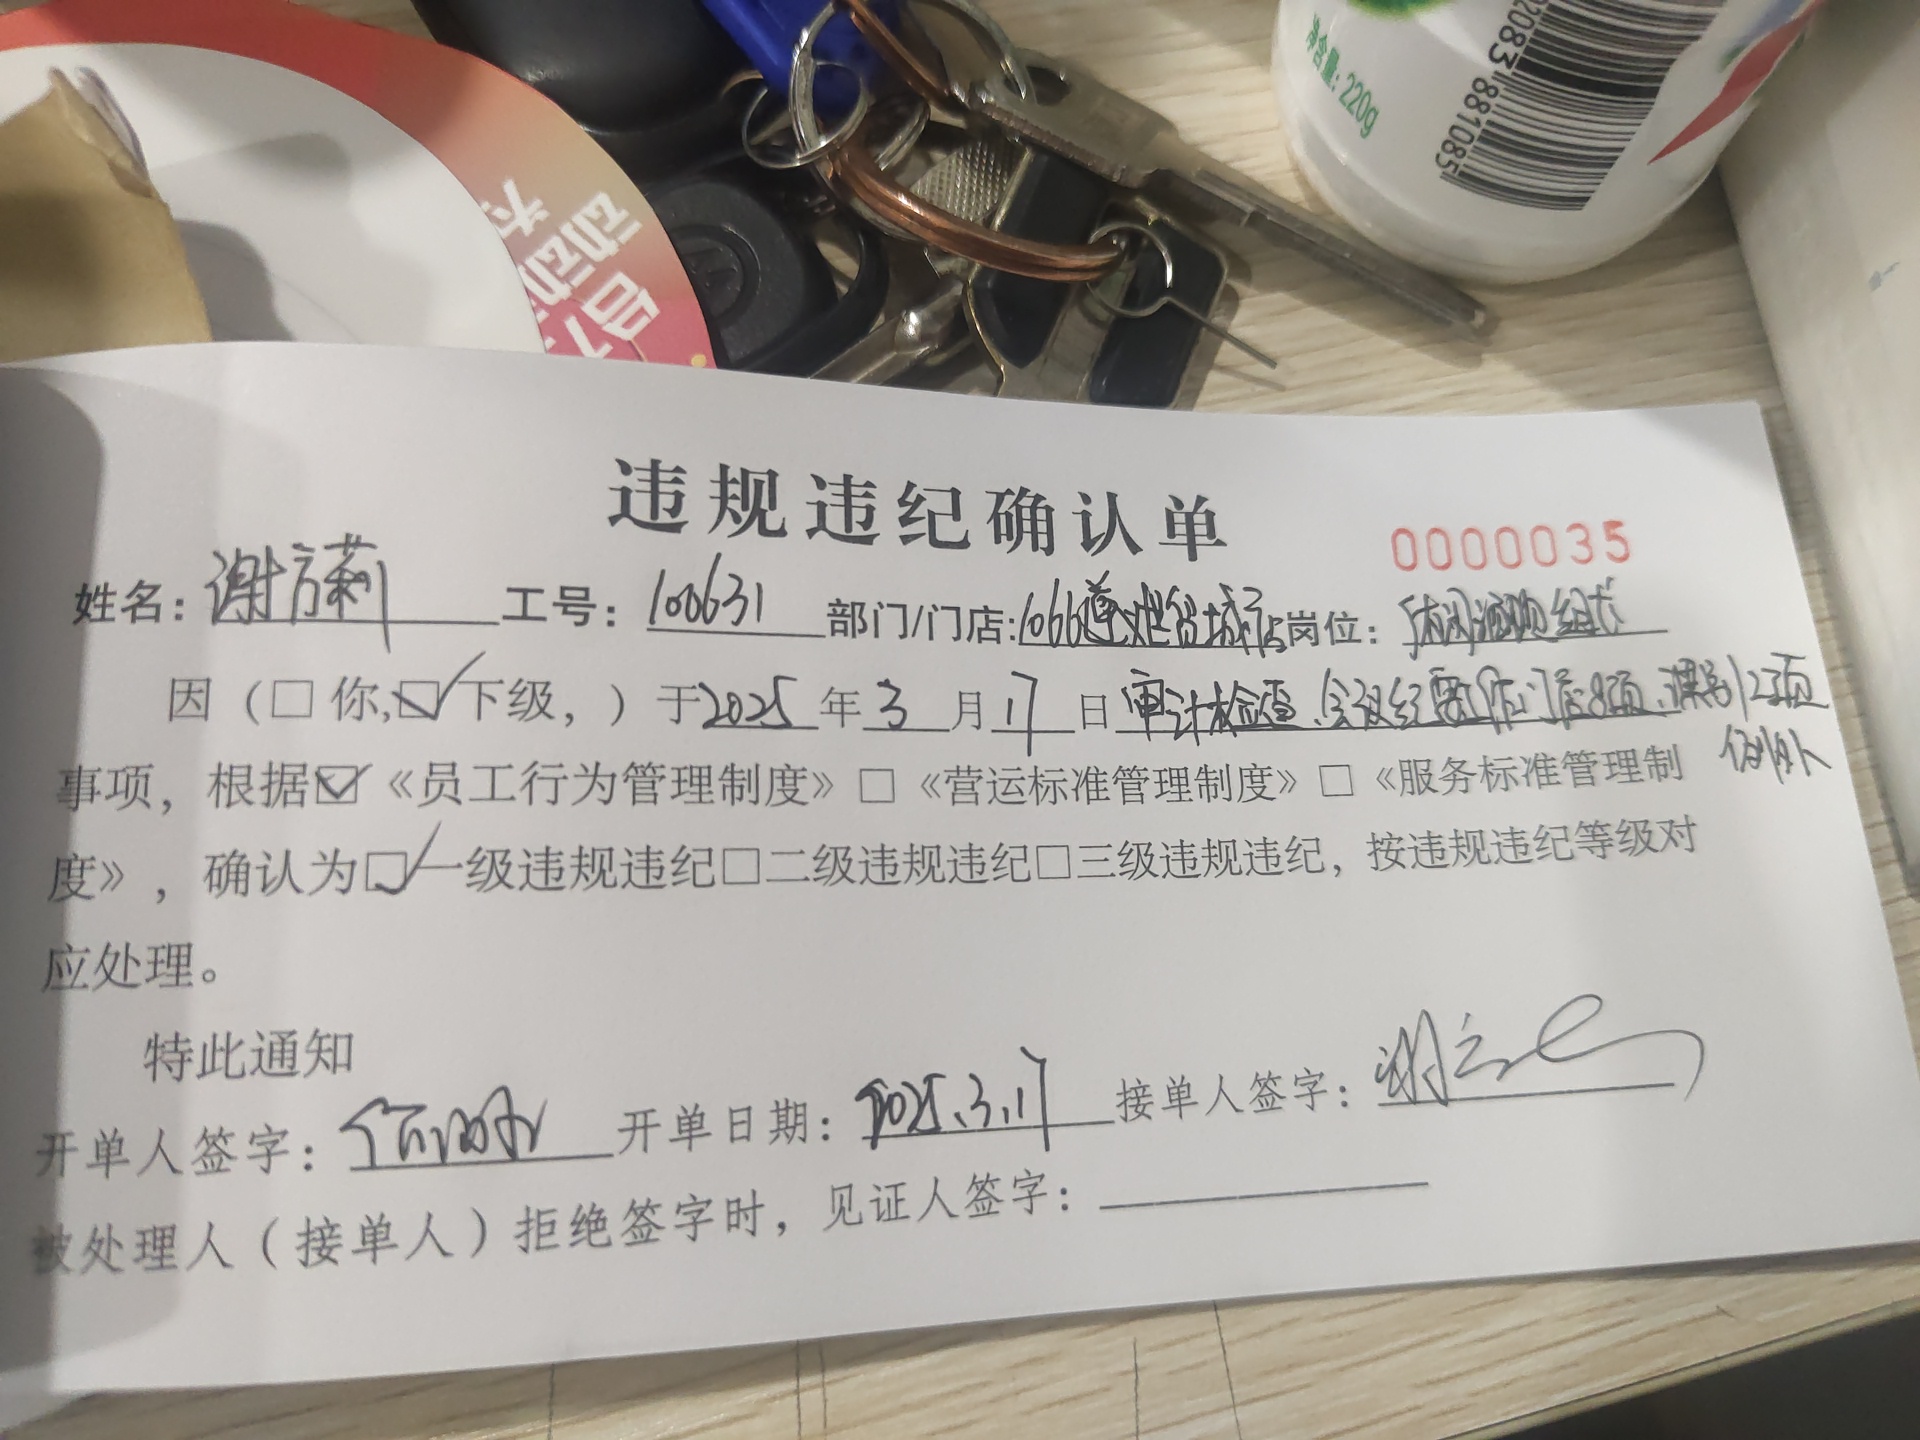 净含量：220g
02083 881085
动动
违规违纪确认单
0000035
姓名：谢方莉 工号：100631 部门/门店：1066遵 城店 岗位：休闲 组长
因（□你，☑下级，）于2025年3月17日审计检查、会议纪要 门店8项、课别12项
例外
事项，根据☑《员工行为管理制度》□《营运标准管理制度》□《服务标准管理制
度》，确认为☑一级违规违纪□二级违规违纪□三级违规违纪，按违规违纪等级对
应处理。
特此通知
开单人签字： 开单日期：2025.3.17 接单人签字：
被处理人（接单人）拒绝签字时，见证人签字：